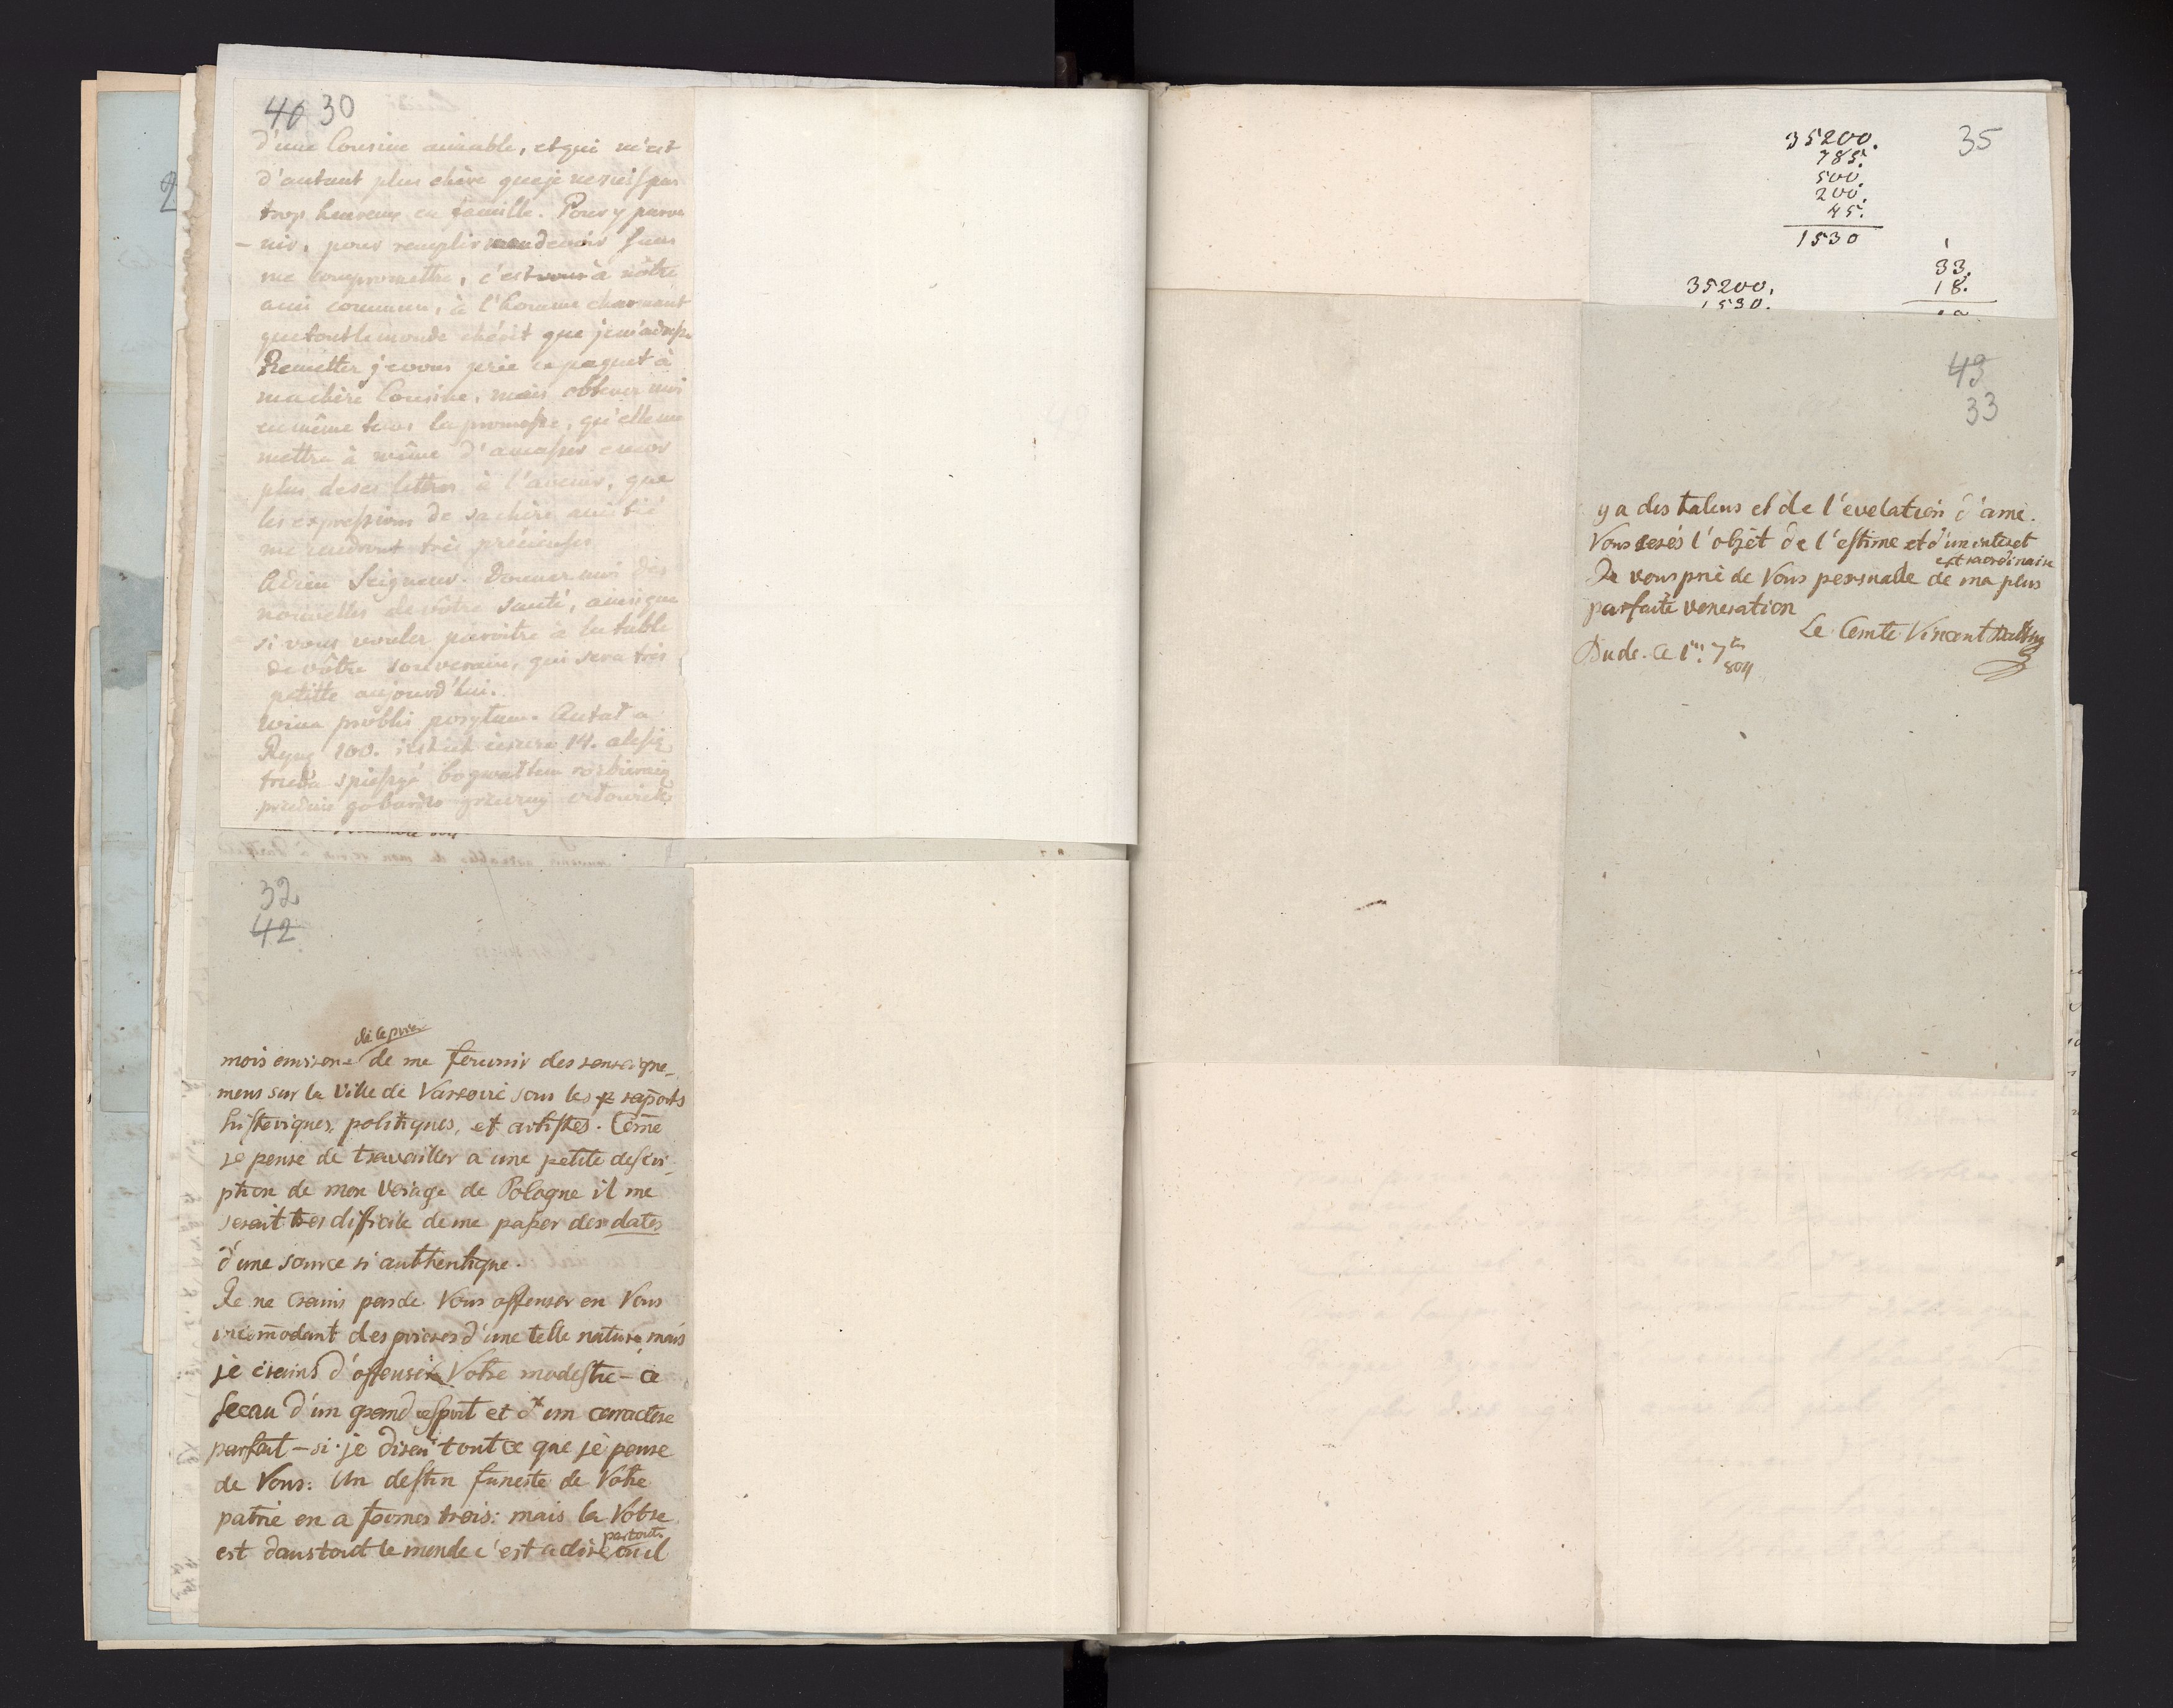 40 30
d'une Cousine aimable, et qui m'est
d'autant plus chère que je ne suis pas
trop heureux en famille. Pour y parve
- nir, pour remplir mon devoir sans
me compromettre, c'est à nôtre
ami commun, à l'homme charmant
que tout le monde chérit que je m'adresse
Remettez je vous prie ce paquet à
ma chère Cousine, mais obtenez moi
en même tems la promesse, qu'elle me
mettra à même d'amasser encor
plus de ses lettres à l'avenir, que
les expressions de sa chère amitié
me rendront très précieuses
Adieu Seigneur. Donnez moi des
nouvelles de vôtre santé, ainsi que
si vous voulez paroitre à la table
de vôtre souverain, qui sera très
petitte aujourd'hui.
100. 14.
32
42
mois environ de me fournir des renseigne-
mens sur la Ville de Varsovie sous les raports
historiques, politiques, et artistes. Come
je pense de travailler a une petite descri-
ption de mon Voiage de Pologne il me
serait tres difficile de me passer des dates
d'une source si authentique.
Je ne crains pas de Vous offenser en Vous
incomodant des prieres d'une telle nature, mais
je crains d'offenser Votre modestie - ce
sceau d'un grand esprit et d'un caractere
parfait - si je disais tout ce que je pense
de Vous: Un destin funeste de Votre
patrie en a formes trois: mais la Votre
est dans tout le monde c'est a dire partout où il
35200.
785.
500.
200.
45.
1530
35
33.
18.
35200.
1530.
43
33
y a des talens et de l'evelation d'ame.
Vous serés l'objet de l'estime et d'un interet
extraordinaire
Je vous prie de Vous persuade de ma plus
parfaite veneration
Le Comte Vincent
Bude. Ce 1